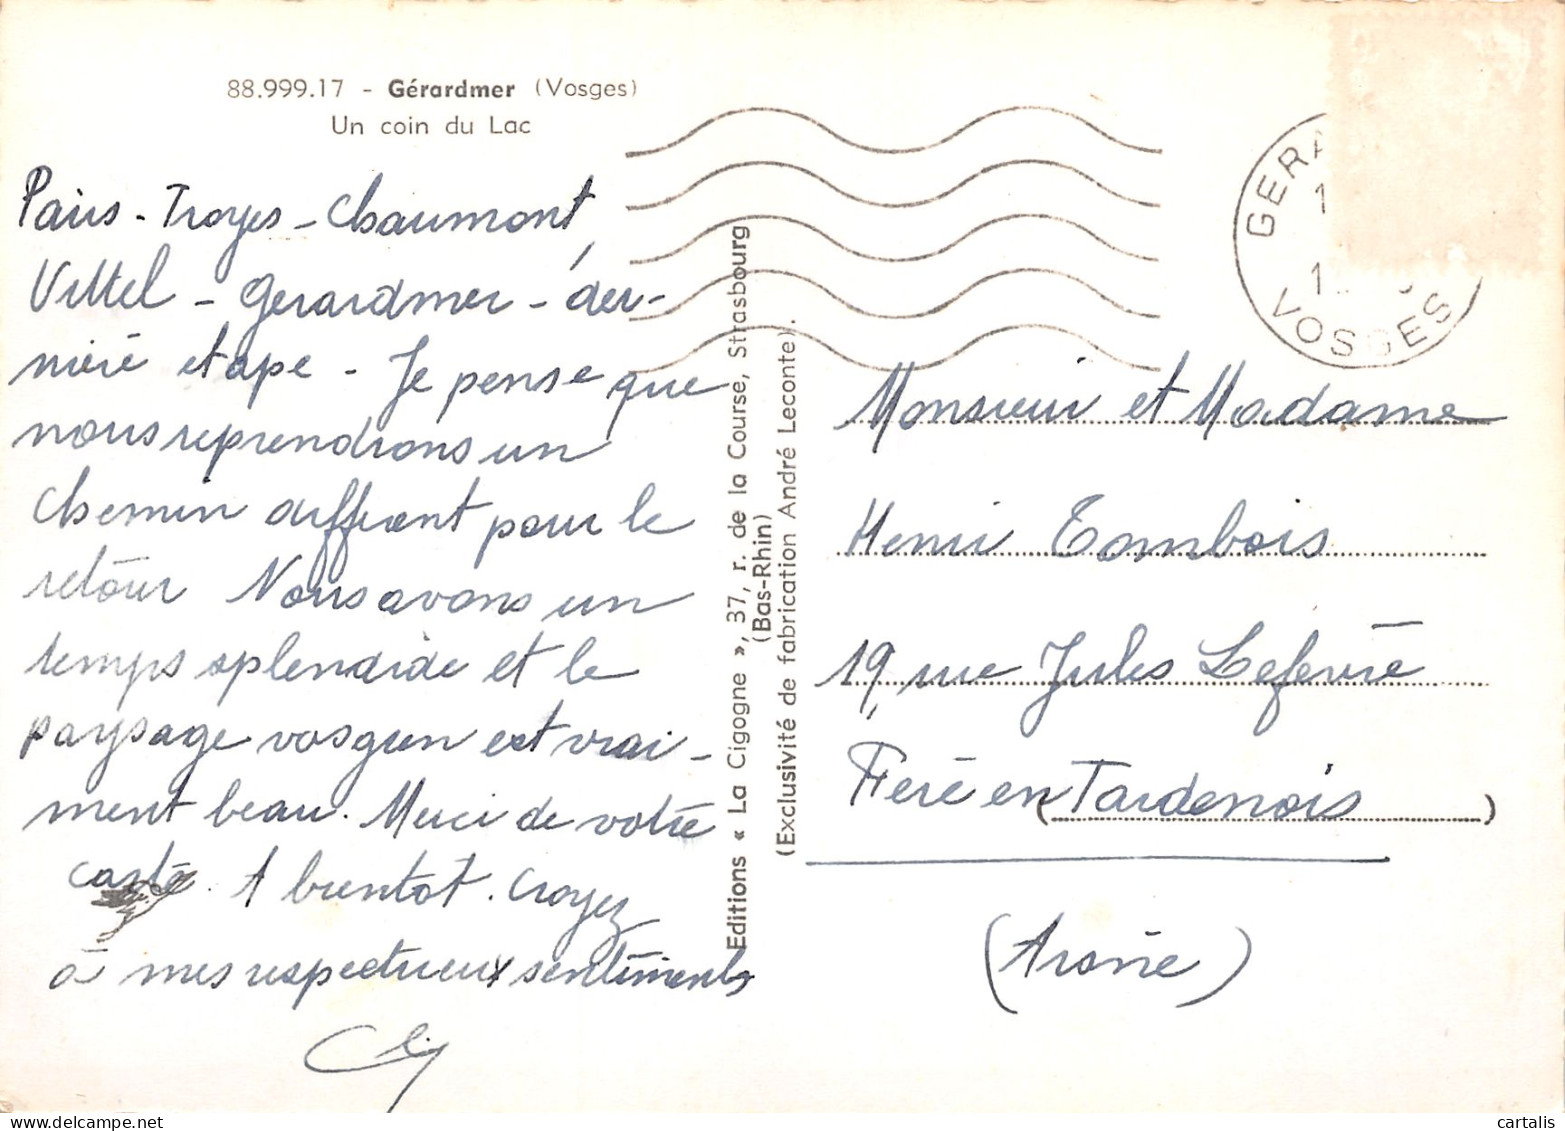 88.999.17 - Gérardmer (Vosges)
Un coin du Lac
Paris - Troyes - Chaumont,
Vittel - Gerardmer - der-
nière etape - Je pense que
nous reprendrons un
chemin différent pour le
retour Nous avons un
temps splendide et le
paysage vosgien est vrai-
ment beau. Merci de votre
carte. A bientot. Croyez
à mes respectueux sentiments
Editions « La Cigogne », 37, r. de la Course, Strasbourg
(Bas-Rhin)
(Exclusivité de fabrication André Leconte).
GERA
VOSGES
Monsieur et Madame
Henri Tombois
19, rue Jules Lefevre
Fère en Tardenois
(Aisne)
cartalis
www.cartalis.com